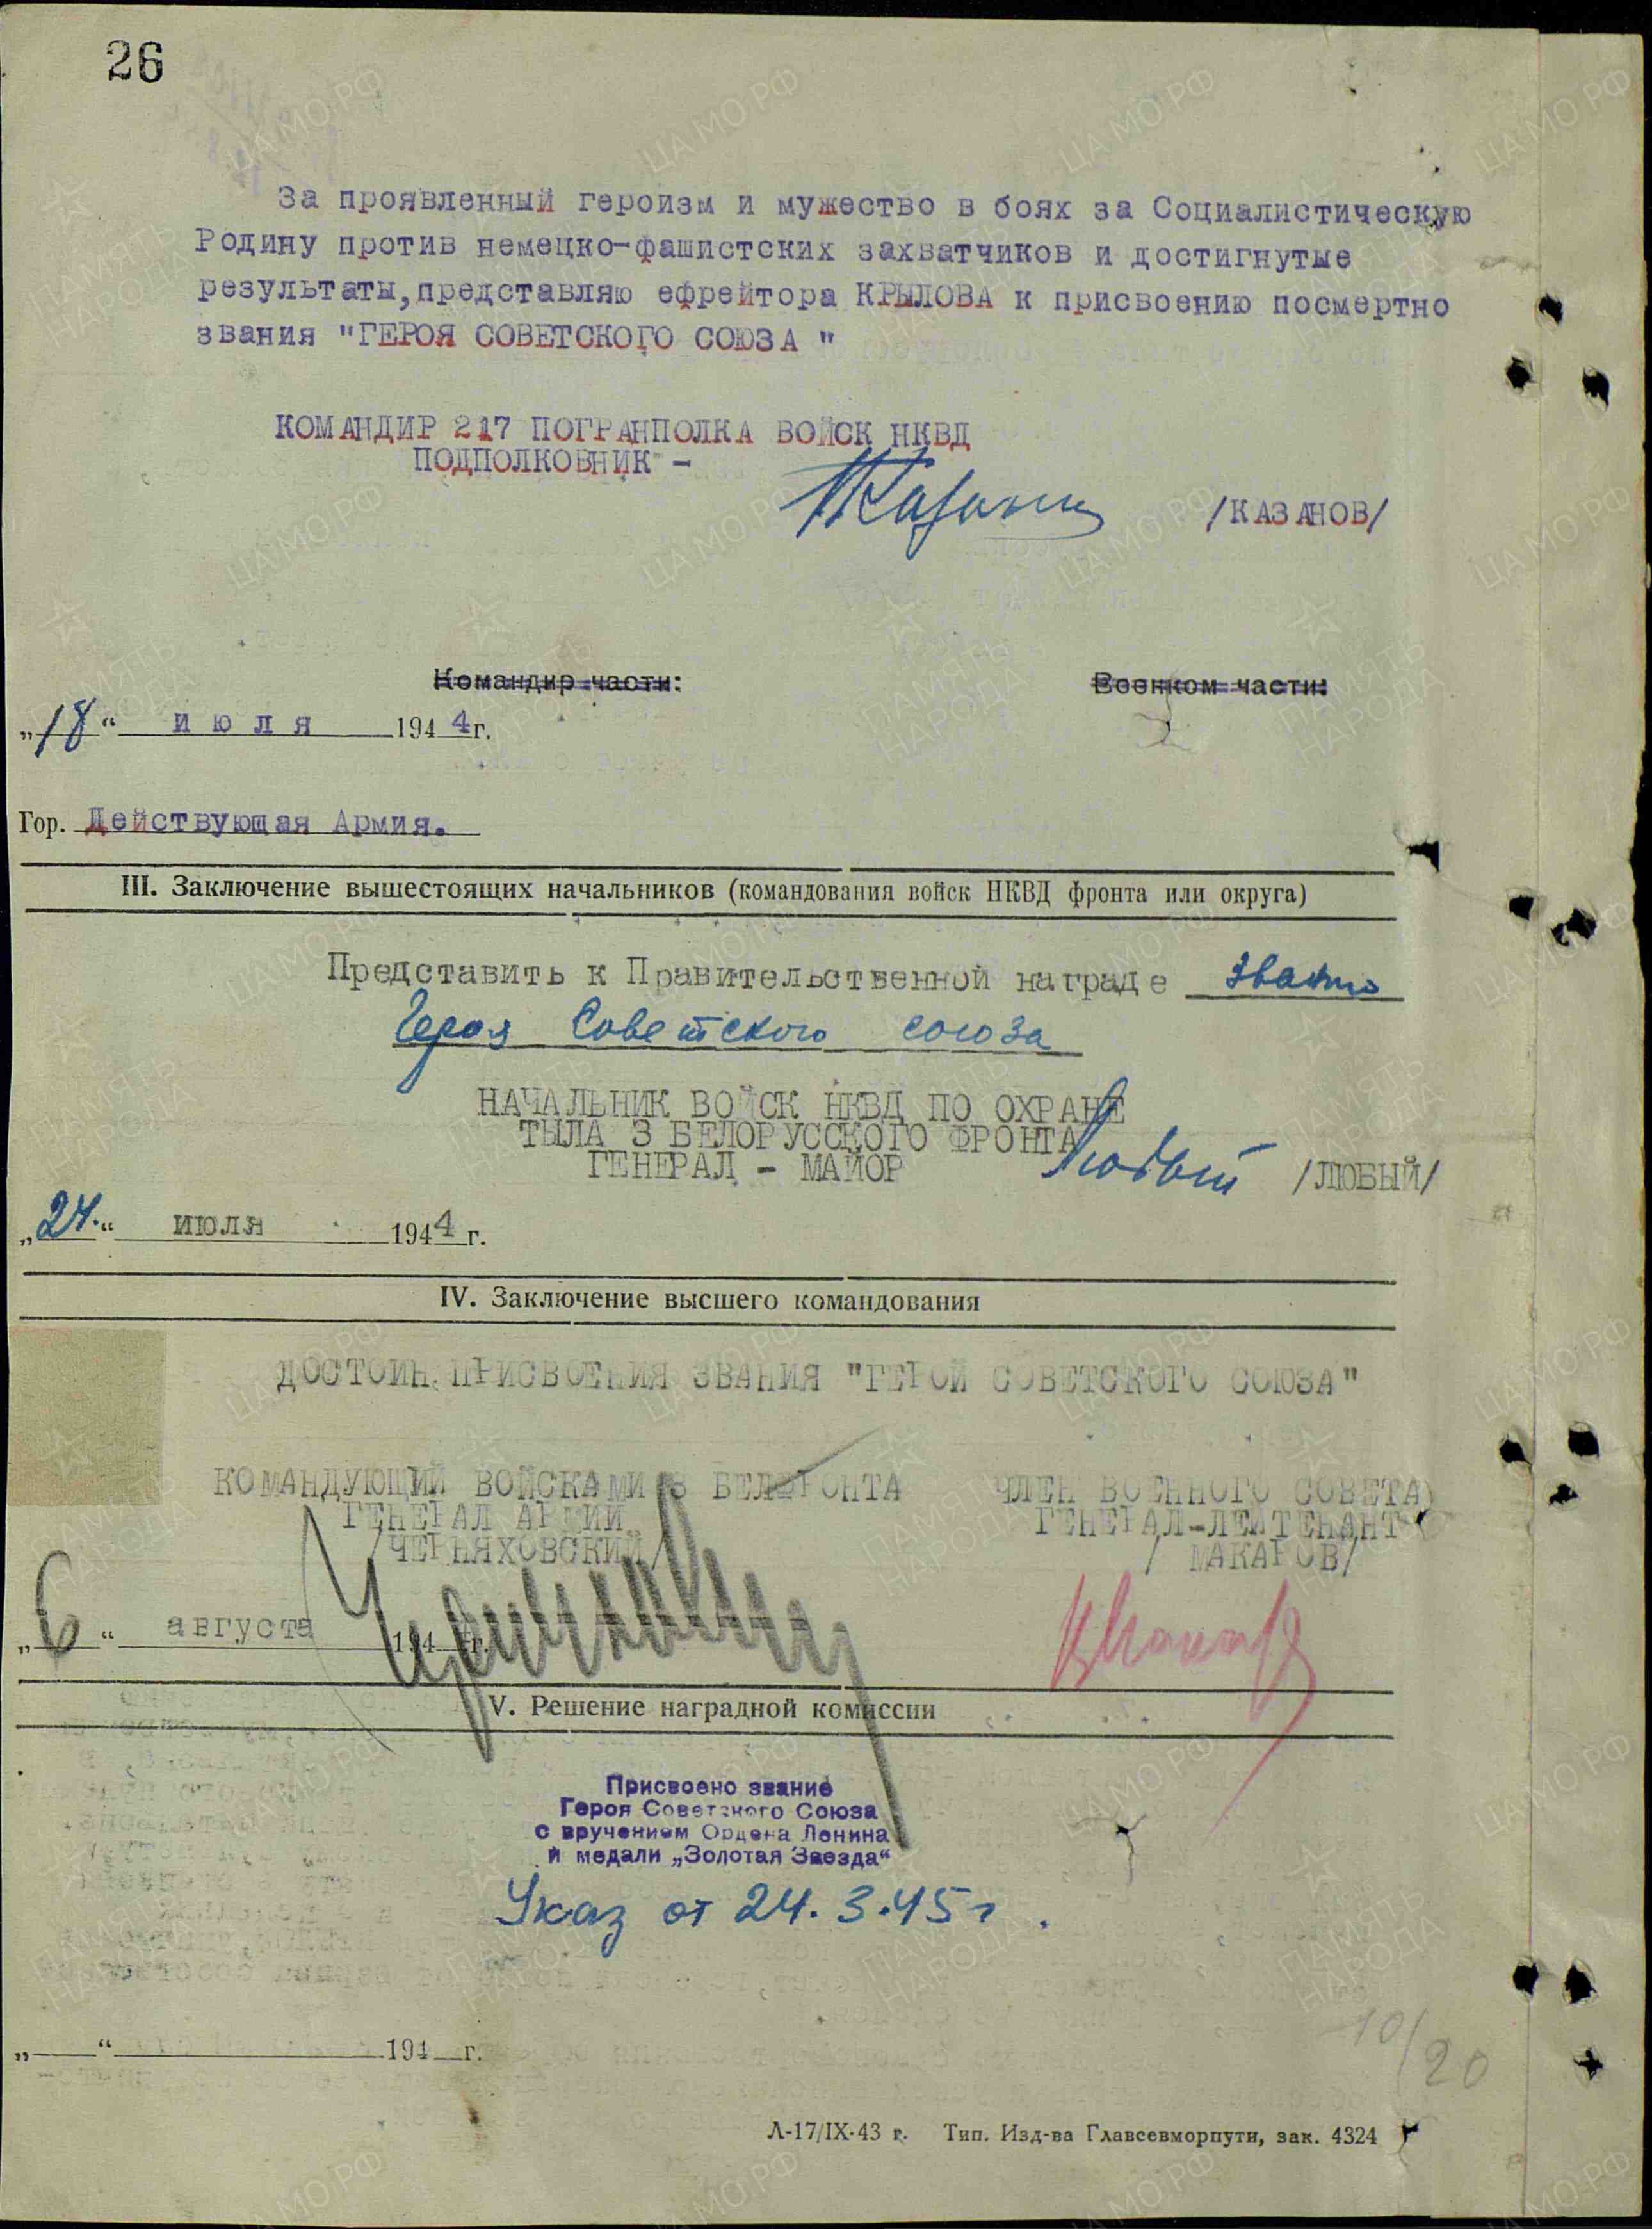 26
За проявленный героизм и мужество в боях за Социалистическую
Родину против немецко-фашистских захватчиков и достигнутые
результаты, представляю ефрейтора КРЫЛОВА к присвоению посмертно
звания "ГЕРОЯ СОВЕТСКОГО СОЮЗА "
КОМАНДИР 217 ПОГРАНПОЛКА ВОЙСК НКВД
ПОДПОЛКОВНИК -
/КАЗАНОВ/
Командир части: Военком части:
„18“ июля 1944г.
Гор. Действующая Армия.
III. Заключение вышестоящих начальников (командования войск НКВД фронта или округа)
Представить к Правительственной награде званию
Героя Советского союза
НАЧАЛЬНИК ВОЙСК НКВД ПО ОХРАНЕ
ТЫЛА 3 БЕЛОРУССКОГО ФРОНТА
ГЕНЕРАЛ - МАЙОР Любый /ЛЮБЫЙ/
„24.“ июля 1944г.
IV. Заключение высшего командования
ДОСТОИН ПРИСВОЕНИЯ ЗВАНИЯ "ГЕРОЙ СОВЕТСКОГО СОЮЗА"
КОМАНДУЮЩИЙ ВОЙСКАМИ 3 БЕЛФРОНТА ЧЛЕН ВОЕННОГО СОВЕТА
ГЕНЕРАЛ АРМИИ ГЕНЕРАЛ-ЛЕЙТЕНАНТ
/ЧЕРНЯХОВСКИЙ/ / МАКАРОВ/
„6“ августа 194 г.
V. Решение наградной комиссии
Присвоено звание
Героя Советского Союза
с вручением Ордена Ленина
и медали „Золотая Звезда“
Указ от 24.3.45 г.
„ “ 194 г.
10/20
Л-17/IX-43 г. Тип. Изд-ва Главсевморпути, зак. 4324
ЦАМО РФ
ПАМЯТЬ НАРОДА